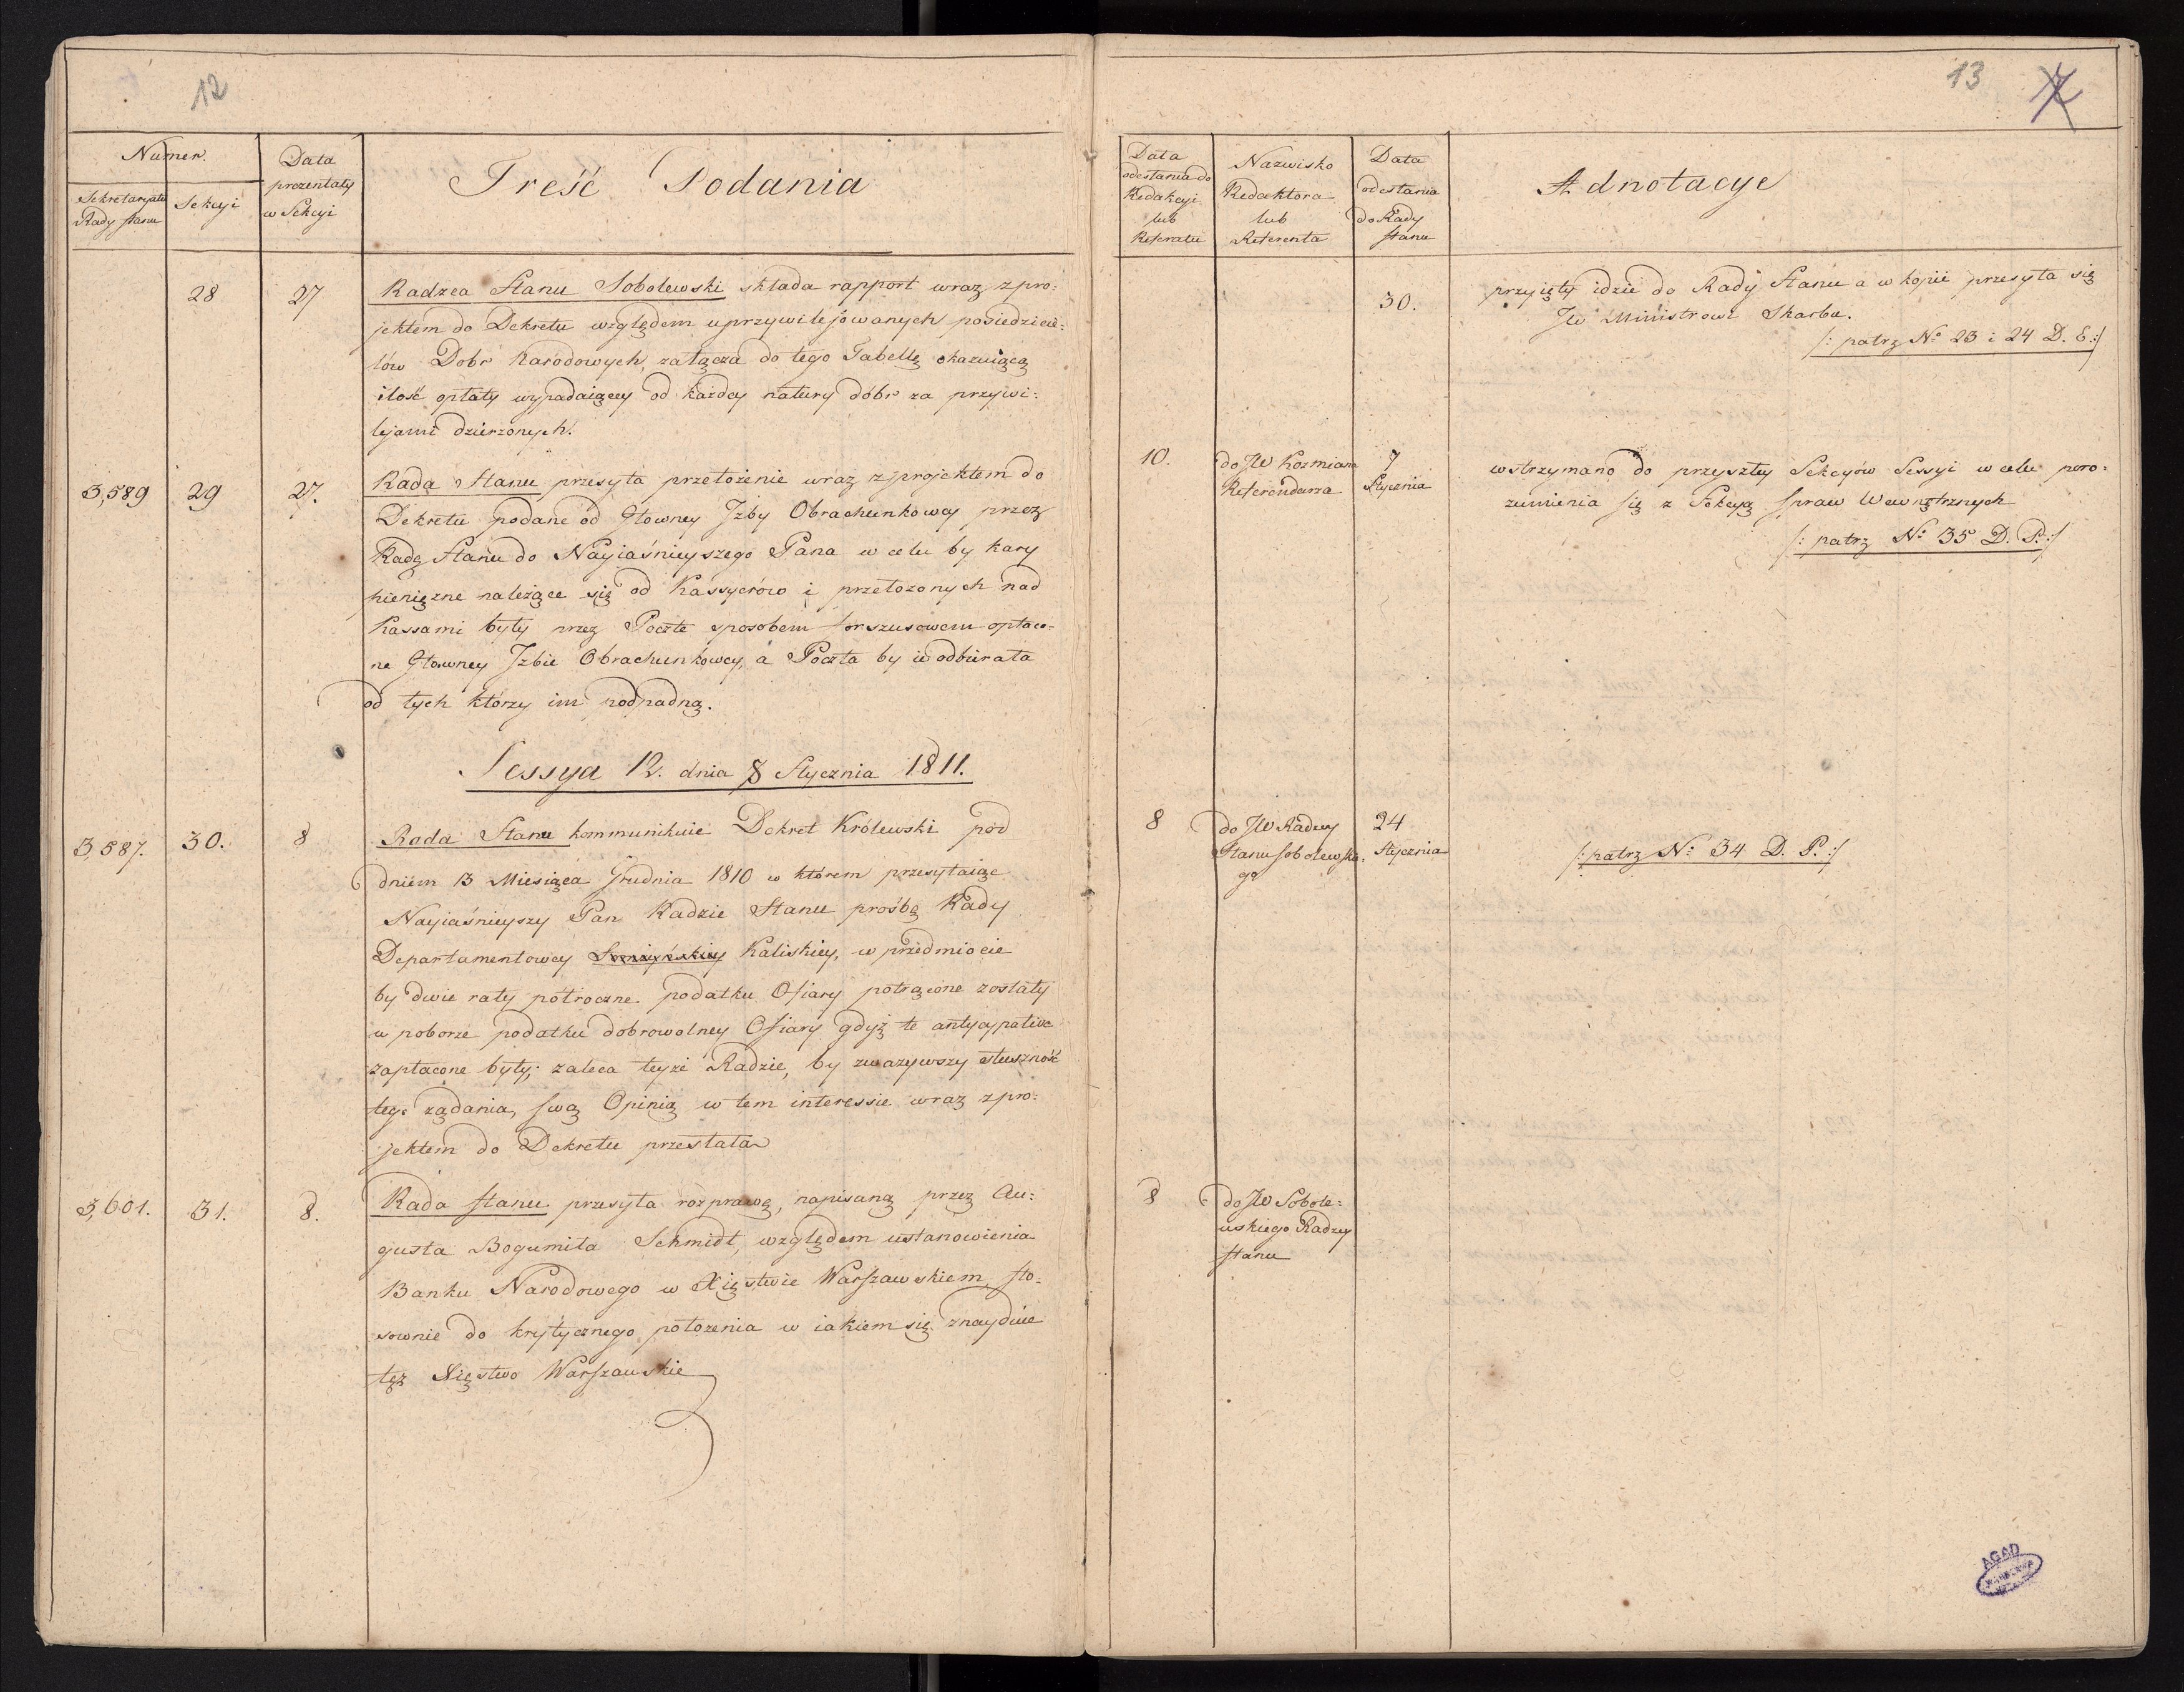 12
Numer.
Sekretaryatu
Rady Stanu
Sekcyi
Data
prezentaty
w Sekcyi
Treść Podania
28
27
Radzca Stanu Sobolewski składa rapport wraz z pro:
jektem do Dekretu względem uprzywilejowanych posiedzicie:
lów Dobr Narodowych, załącza do tego Tabellę okazuiącą
ilość opłaty wypadaiącey od każdey natury dóbr za przywi:
lejami dzierzonych.
3,589
29
27.
Rada Stanu przesyła przełożenie wraz z projektem do
Dekretu podane od Głowney Jzby Obrachunkowey przez
Radę Stanu do Nayiaśnieyszego Pana w celu by kary
pieniężne należące się od Kassyerów i przełożonych nad
Kassami były przez Pocztę sposobem forszusowem opłaco=
ne Głowney Jzbie Obrachunkowey, a Poczta by ie odbierała
od tych którzy im podpadną.
Sessya 12. dnia 8 Stycznia 1811.
3,587.
30.
8
Rada Stanu kommunikuie Dekret Królewski pod
dniem 13 Miesiąca Grudnia 1810 w którem przesyłaiąc
Nayiaśnieyszy Pan Radzie Stanu prośbę Rady
Departamentowey Łomżyńskiey Kaliskiey, w przedmiocie
by dwie raty półroczne podatku Ofiary potrącone zostały
w poborze podatku dobrowolney Ofiary gdyż te antycypative
zapłacone były; zaleca teyże Radzie, by zważywszy słuszność
tego żądania, swą Opinią w tem interessie wraz z pro:
jektem do Dekretu przesłała
3,601.
31.
8.
Rada Stanu przesyła rozprawę, napisaną przez Au:
gusta Bogumiła Schmidt, względem ustanowienia
Banku Narodowego w Xięstwie Warszawskiem sto:
sownie do krytycznego położenia w iakiem się znayduie
też Xięstwo Warszawskie
13
7
Data
odesłania do
Redakcyi
lub
Referatu
Nazwisko
Redaktora
lub
Referenta
Data
odesłania
do Rady
Stanu
Adnotacye
30.
przyięty idzie do Rady Stanu a w kopii przesyła się
JW Ministrowi Skarbu.
/: patrz No 23 i 24 D. E:/
10.
do JW Kozmiana
Referendarza
7
Stycznia
wstrzymano do przyszłey Sekcyów Sessyi w celu poro:
zumienia się z Sekcyą spraw Wewnętrznych
/: patrz No 35 D. P.:/
8
do JW Radcy
Stanu Sobolewskie,
go
24
Stycznia
/: patrz No 34 D. P. :/
8
do JW Sobole:
wskiego Radzcy
Stanu
AGAD